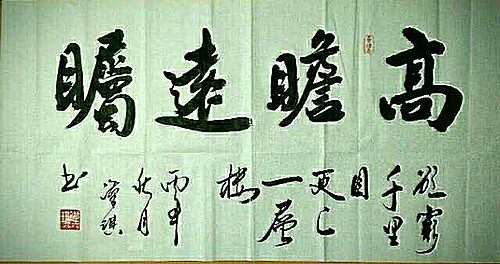 高瞻遠矚
欲窮
千里
目
更上
一層
樓
丙申
秋月
书